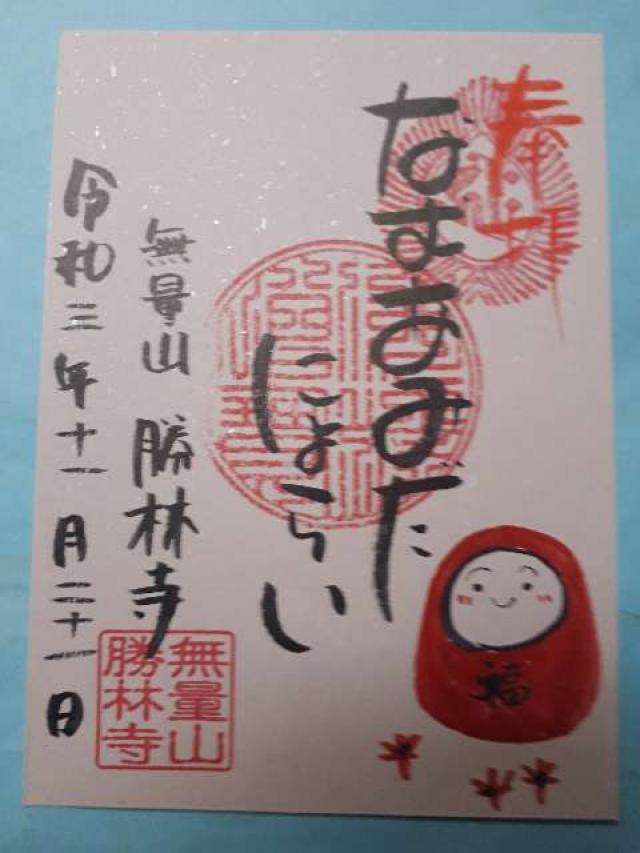 奉拝
なむあみだ
にょらい
無量山 勝林寺
令和三年十一月二十一日
福
無量山
勝林寺